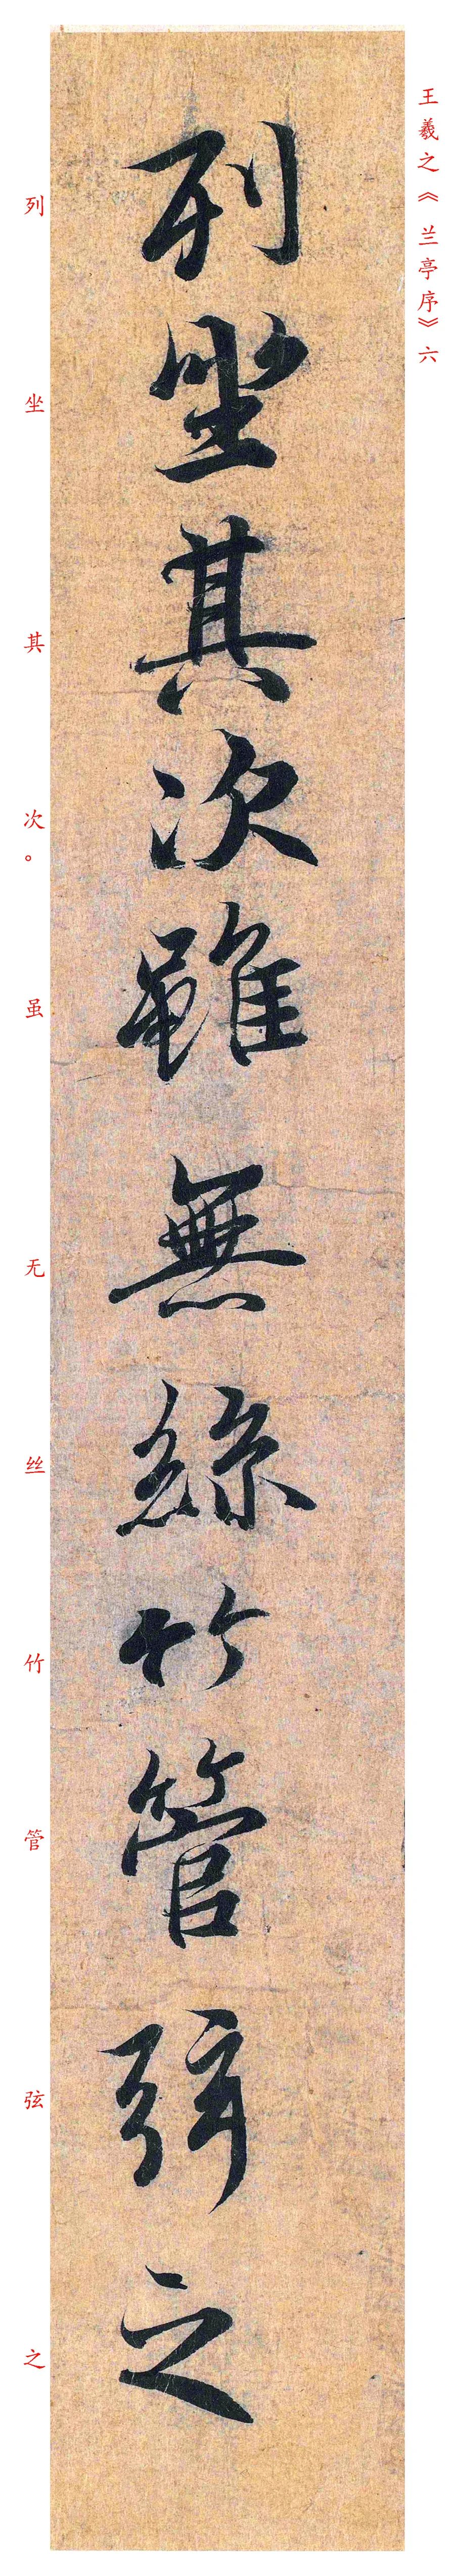 王羲之《兰亭序》六
列坐其次雖無絲竹管弦之
列坐其次。虽无丝竹管弦之